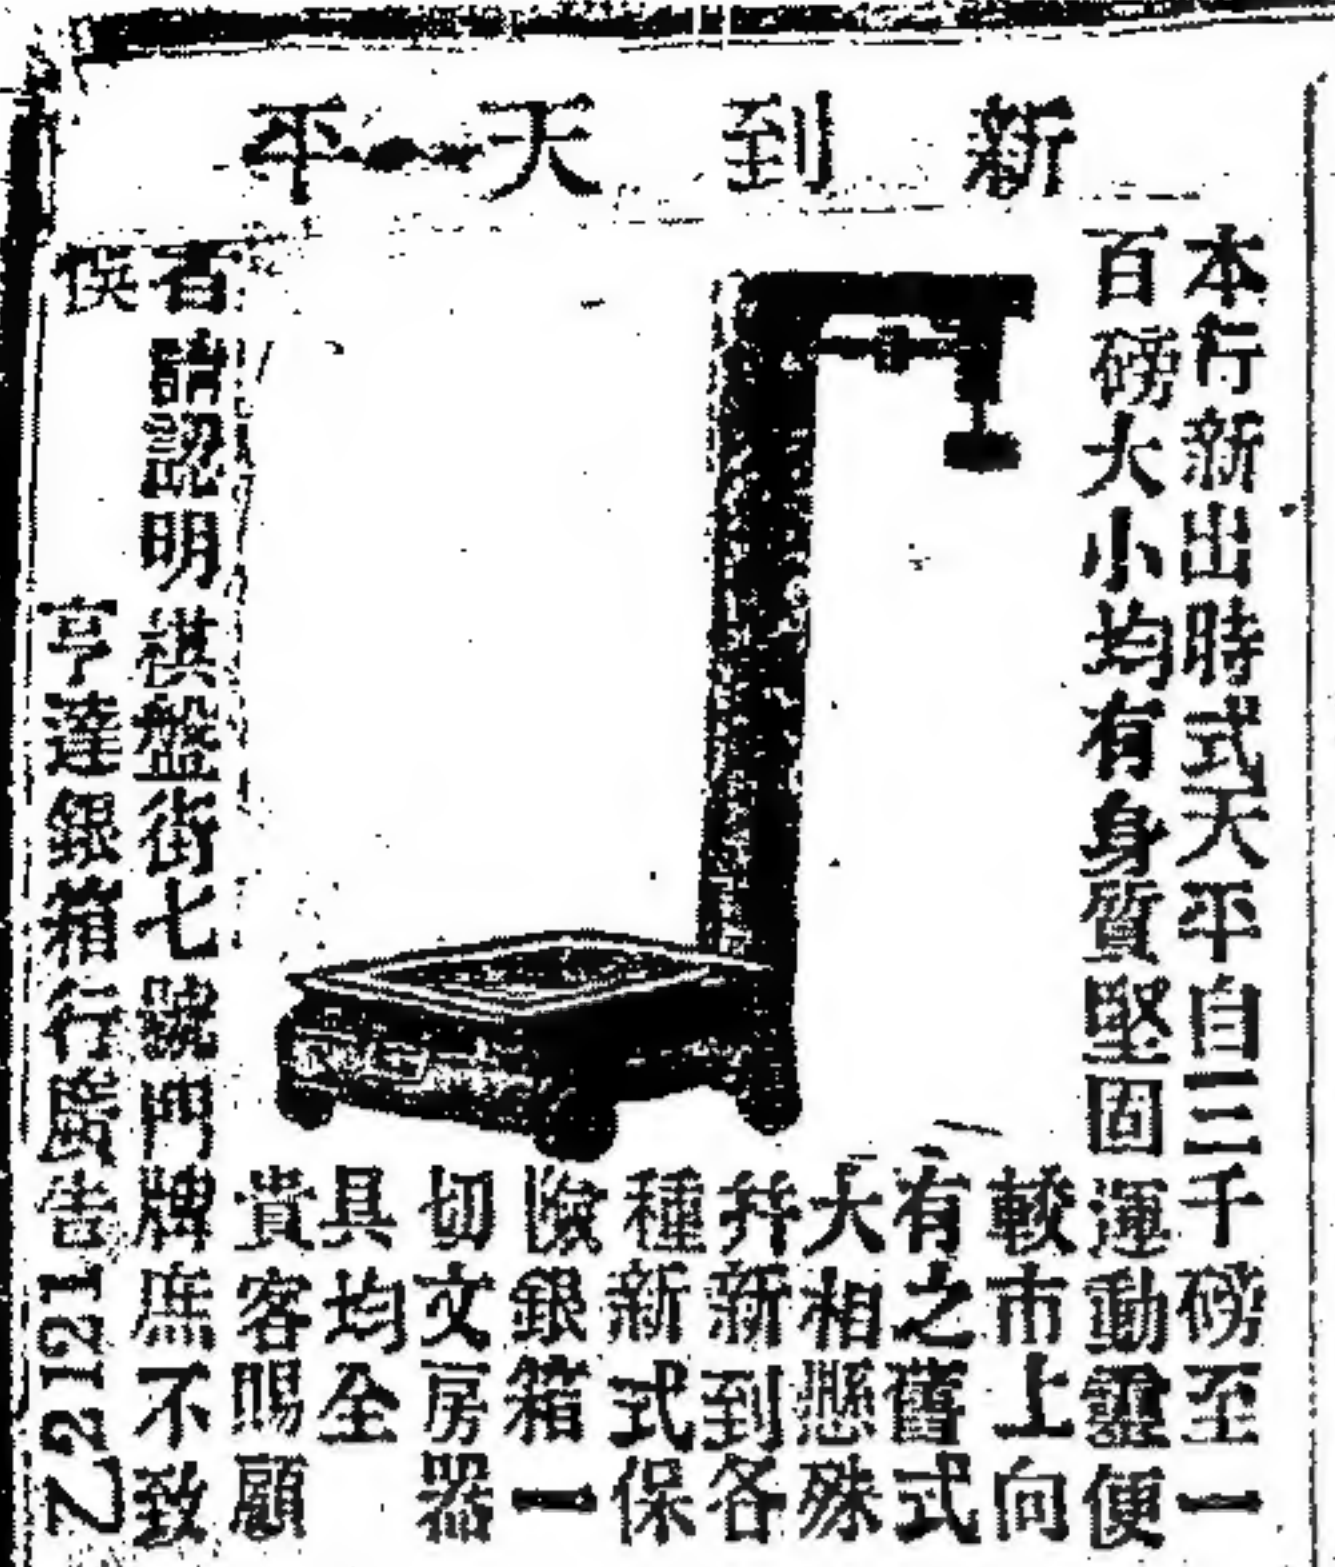 新到天平
本行新出時式天平自三千磅至一
百磅大小均有身質堅固運動靈便
較市上向
有之舊式
大相懸殊
幷新到各
種新式保
險銀箱一
切文房器
具均全
貴客賜顧
者請認明棋盤街七號門牌庶不致
悞
亨達銀箱行廣告
Z2121